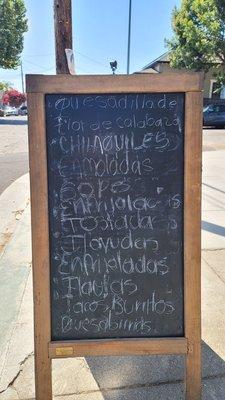 Quesadilla de
flor de calabaza
CHILAQUILES
Enmoladas
Sopes
Enchiladas
Tostadas
Tlayudas
Enfrijoladas
Flautas
Tacos, Burritos
Quesabirrias